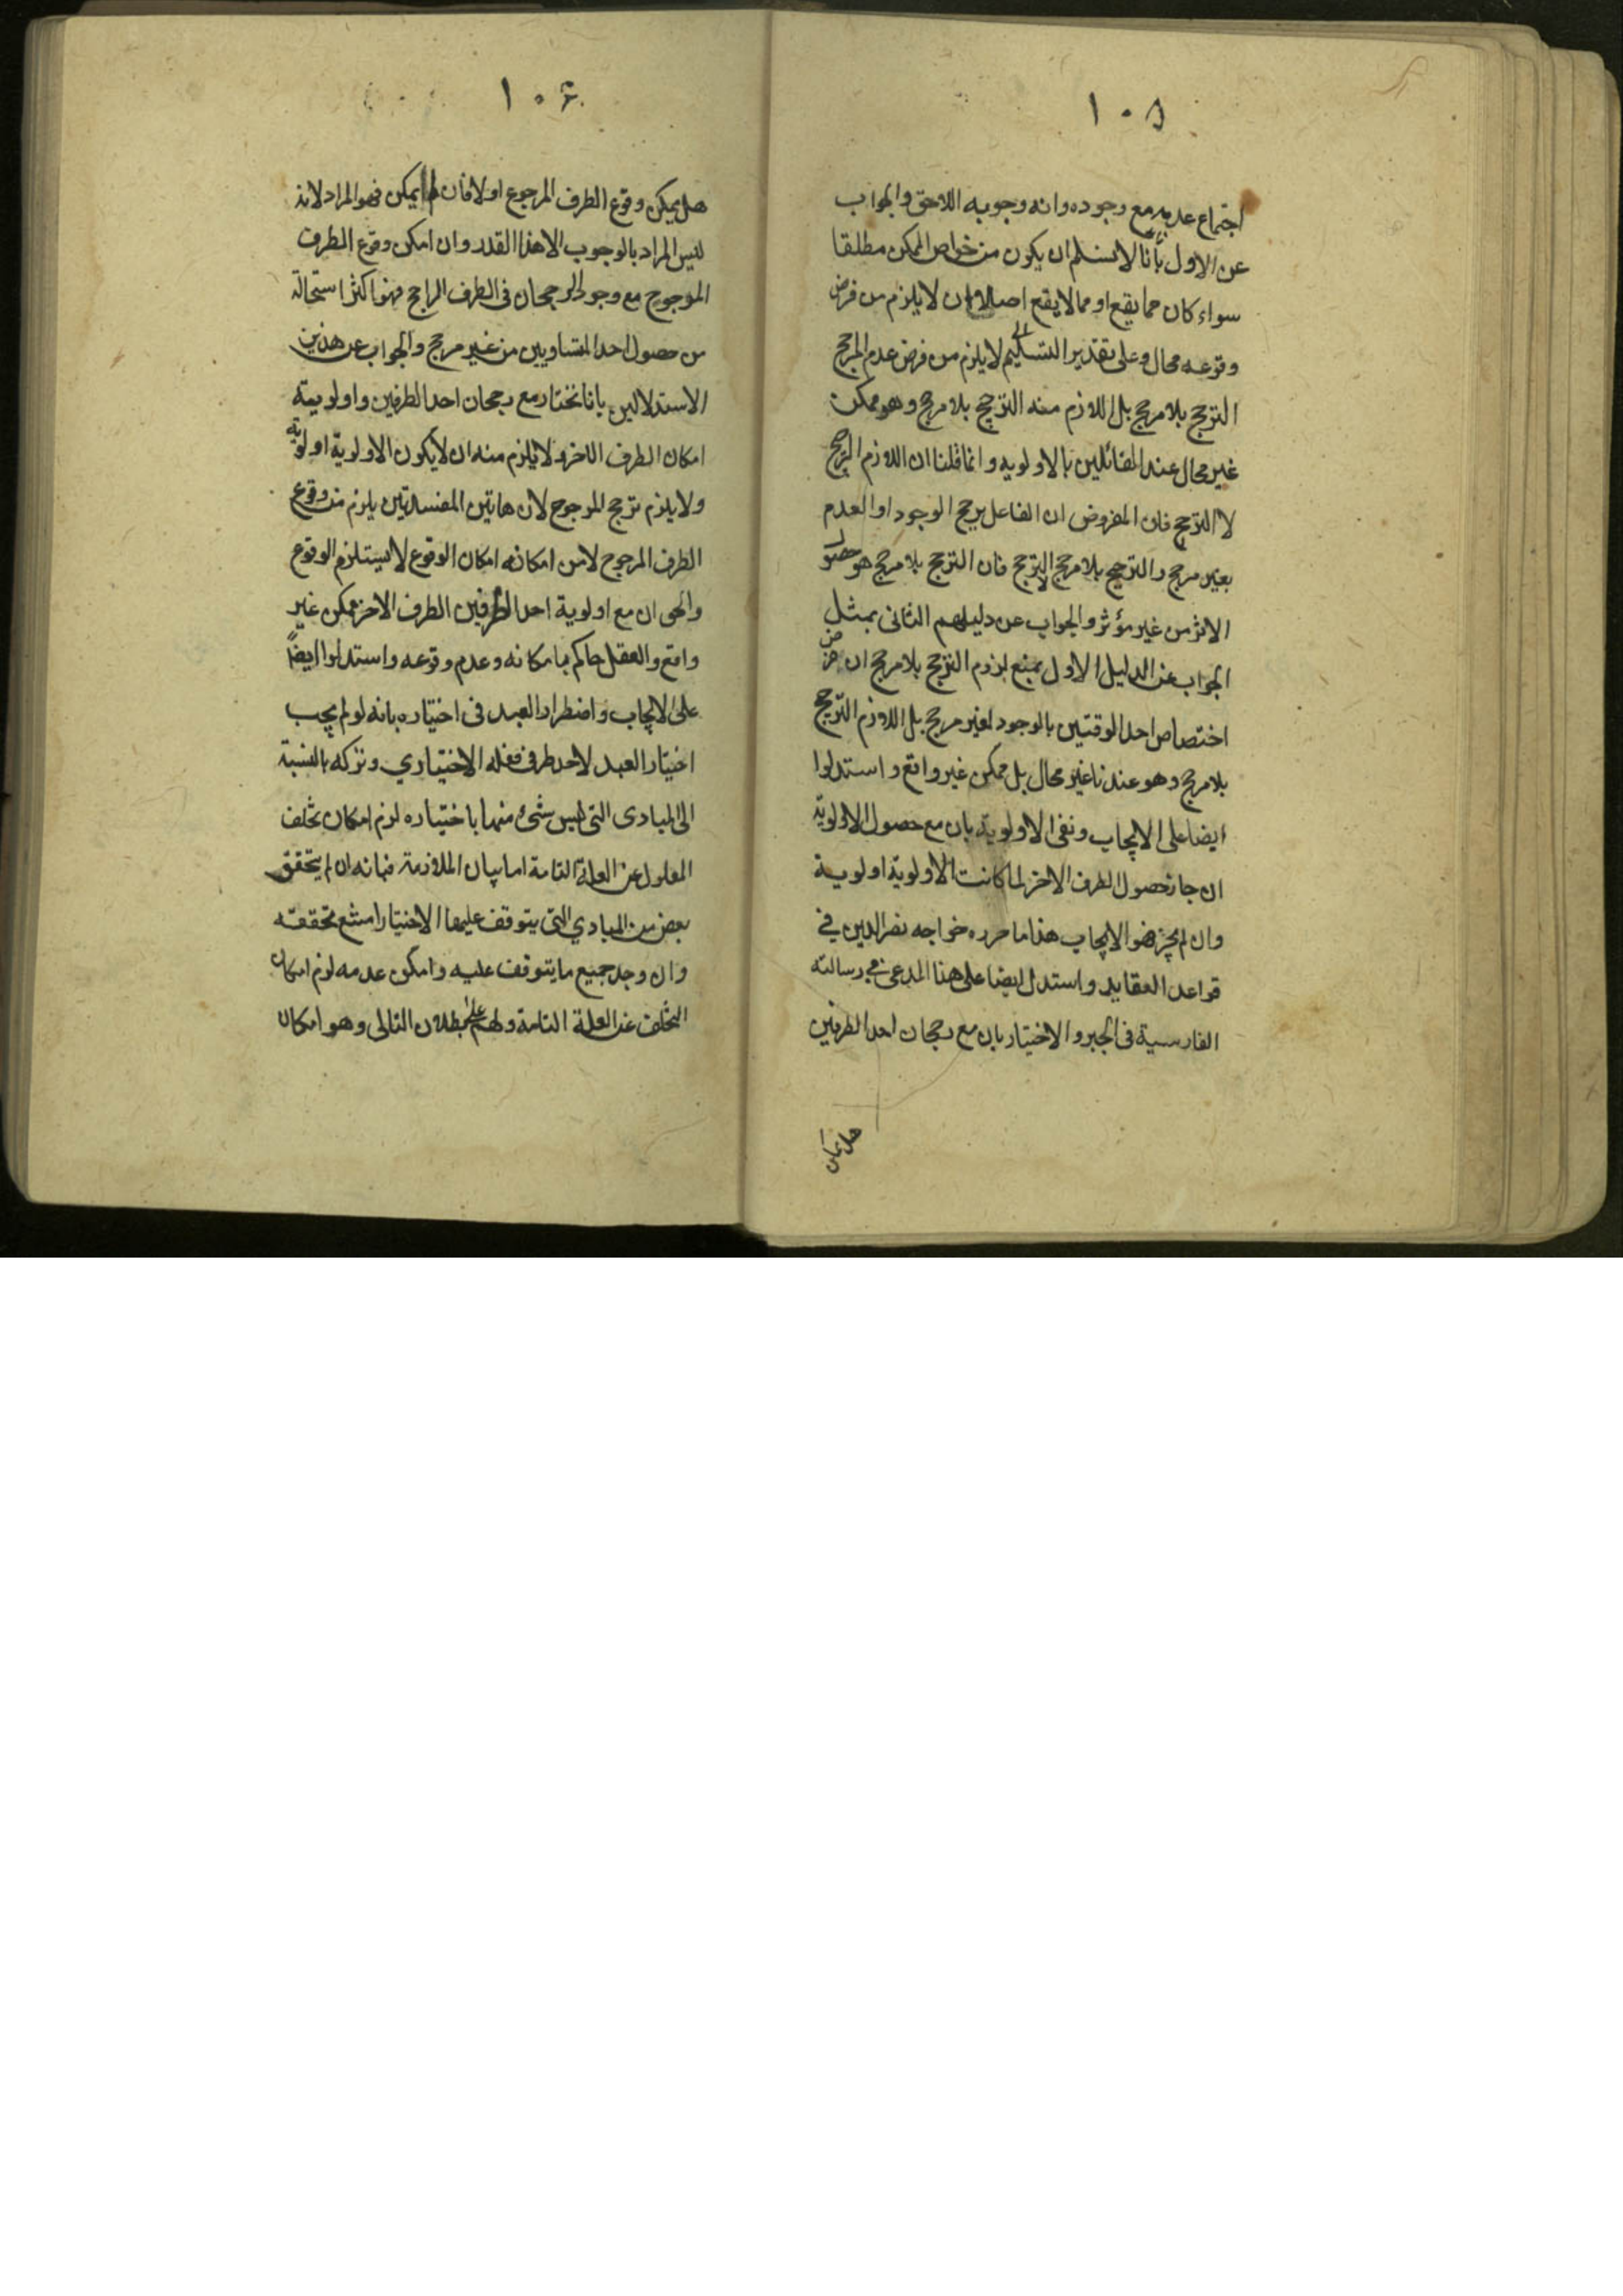 ١٠٥
اجتماع عدمه مع وجوده وانه وجوبه اللاحق والجواب
عن الاول بأنا لانسلم ان يكون من خواص الممكن مطلقا
سواء كان مما يقع او مما لا يقع اصلا ان لا يلزم من فرض
وقوعه محال وعلى تقدير التسليم لا يلزم من فرض عدم المرجح
الترجح بلا مرجح بل اللازم منه الترجيح بلا مرجح وهو ممكن
غير محال عند القائلين بالاولويه وانما قلنا ان اللازم الترجيح
لا الترجح فان المفروض ان الفاعل يرجح الوجود او العدم
بغير مرجح والترجيح بلا مرجح لا الترجح فان الترجح بلا مرجح هو حصول
الاثر من غير مؤثر والجواب عن دليلهم الثانى بمثل
الجواب عن الدليل الاول بمنع لزوم الترجح بلا مرجح ان فرض
اختصاص احد الوقتين بالوجود لغير مرجح بل اللازم الترجيح
بلا مرجح وهو عندنا غير محال بل ممكن غير واقع واستدلوا
ايضا على الايجاب ونفى الاولوية بان مع حصول الاولويّة
ان جاز حصول الطرف الاخر لما كانت الاولوية اولوية
وان لم يجز فهو الايجاب هذا ما حرره خواجه نصر الدين في
قواعد العقايد واستدل ايضا على هذا المدعى في رسالته
الفارسية فى الجبر والاختيار بان مع رجحان احد الطرفين
هل يمكن
١٠٤
هل يمكن وقوع الطرف المرجوع اولا فان لم يمكن فهو المراد لانه
ليس المراد بالوجوب الا هذا القدر وان امكن وقوع الطرف
المرجوح مع وجود الرجحان فى الطرف الراجح فهو اكثر استحالة
من حصول احد المتساويين من غير مرجح والجواب عن هذين
الاستدلالين بانا نختار مع رجحان احد الطرفين واولويته
امكان الطرف الاخر ولا يلزم منه ان لا يكون الاولوية اولوية
ولا يلزم ترجح المرجوح لان هاتين المفسدتين يلزم من وقوع
الطرف المرجوح لا من امكانه امكان الوقوع لا يستلزم الوقوع
والحق ان مع اولوية احد الطرفين الطرف الاخر ممكن غير
واقع والعقل حاكم بامكانه وعدم وقوعه واستدلوا ايضاً
على الايجاب واضطرار العبد فى اختياره بانه لو لم يجب
اختيار العبد لاحد طرفى فعله الاختياري وتركه بالنسبة
الى المبادى التى ليس شئ منها باختياره لزم امكان تخلف
المعلول عن العلة التامة اما بيان الملازمة فبانه ان لم يتحقق
بعض من المبادي التى يتوقف عليها الاختيار امتنع تحققه
وان وجد جميع ما يتوقف عليه وامكن عدمه لزم امكان
التخلف عن العلة التامة ولهم على بطلان التالى وهو امكان